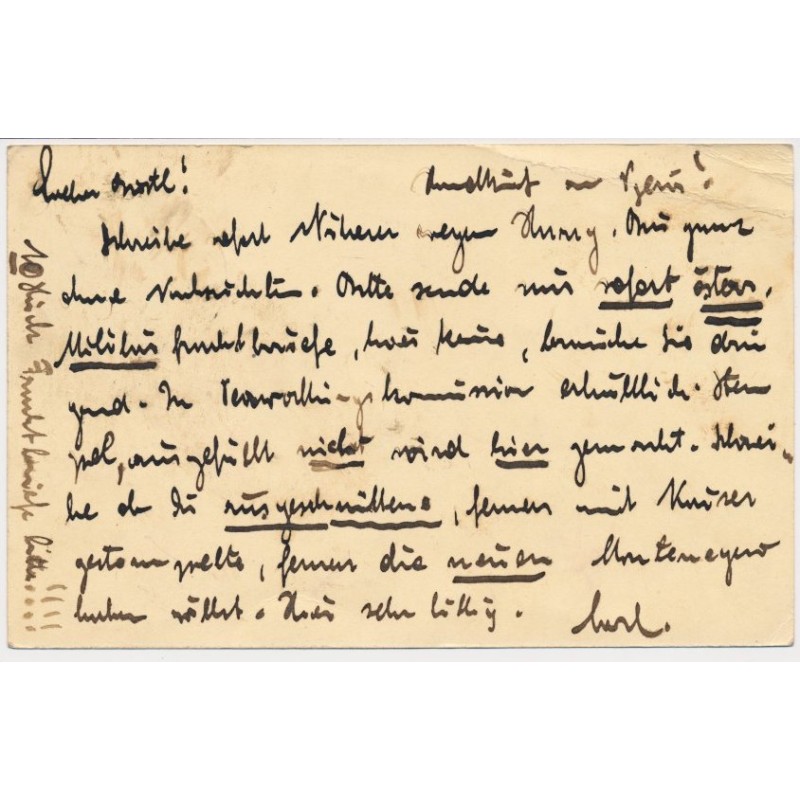 Lieber Gustl!
Handkuß an
Schreibe sofort Näheres wegen. Bin ganz
ohne Nachrichten. Bitte sende mir sofort österr.
Militärfrachtbriefe, hier keine, brauche sie drin
gend. In Verwaltungskommission erhältlich. Stem
pel, ausgefüllt nicht wird hier gemacht. Schrei-
be ob Du ausgeschnittene, ferner mit Kaiser
gestempelte, ferner die neuen Montenegro
haben willst. Hier sehr billig.
Karl.
10 Stück Frachtbriefe bitte...!!!!